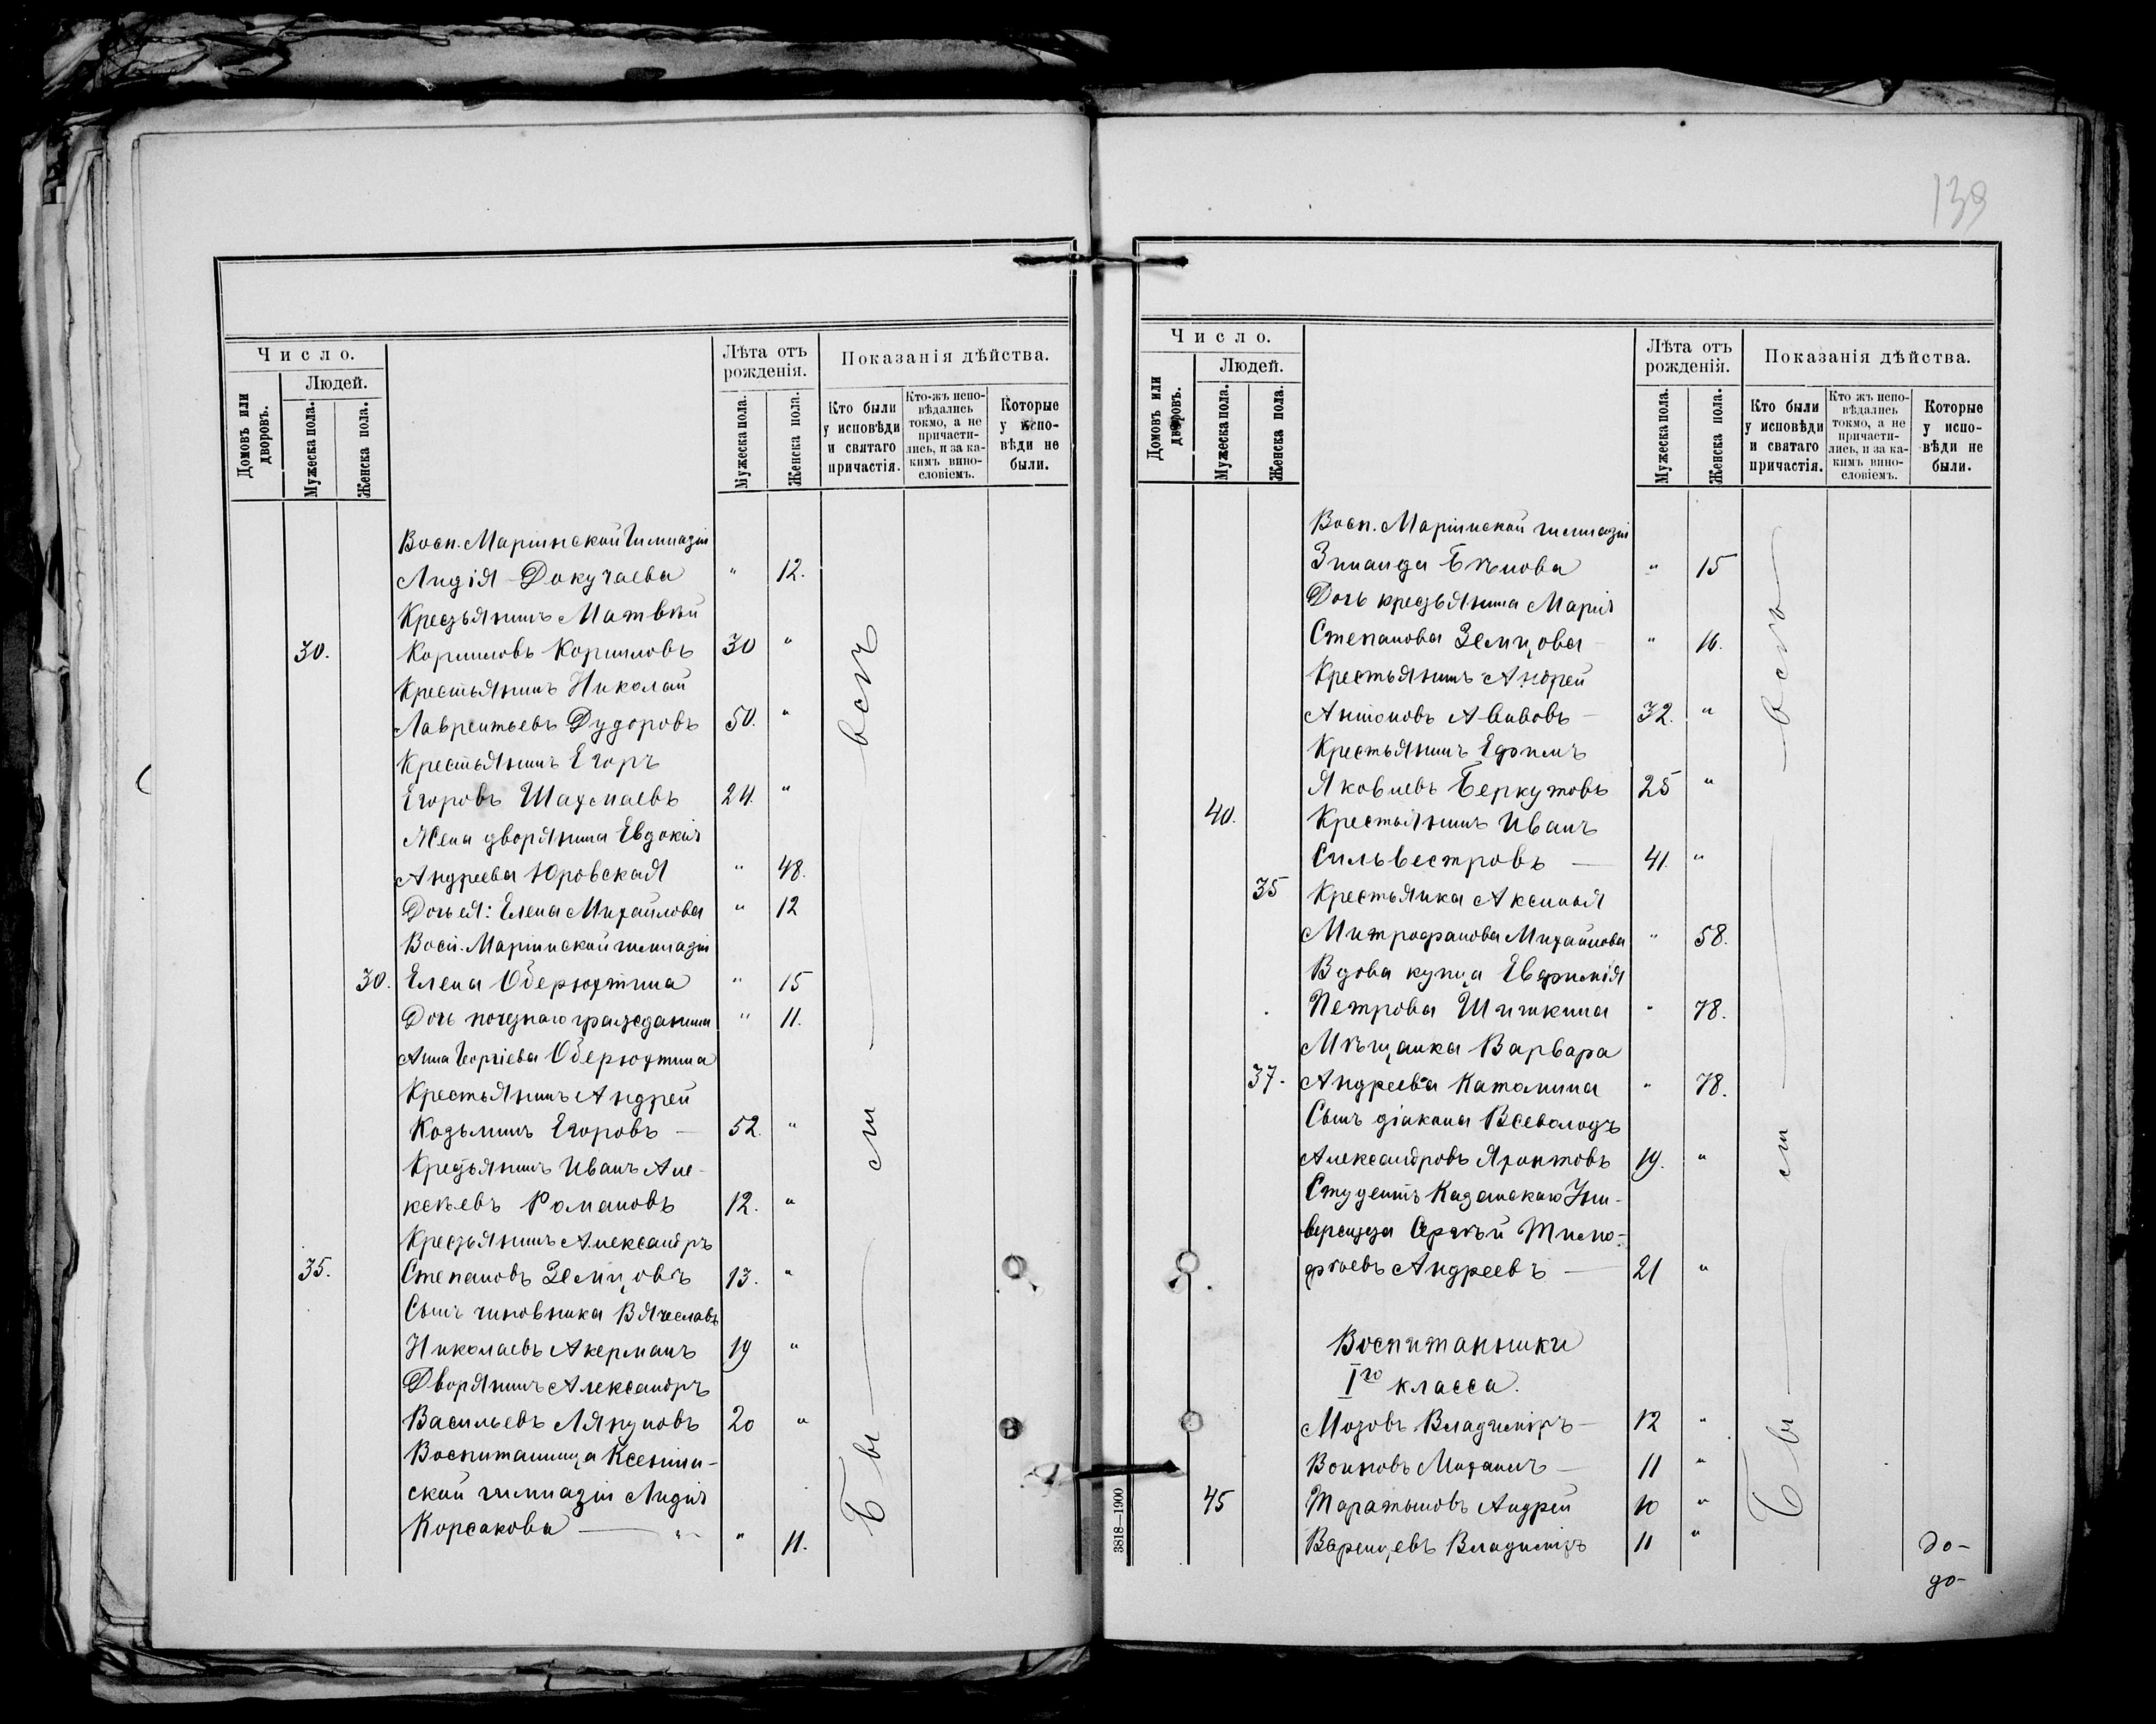 Число.
Домовъ или дворовъ.
Людей.
Мужеска пола.
Женска пола.
Лѣта отъ рожденія.
Мужеска пола.
Женска пола.
Показанія дѣйства.
Кто были у исповѣди и святаго причастія.
Кто-жъ исповѣдались токмо, а не причастились, и за какимъ винословіемъ.
Которые у исповѣди не были.
Восп. Маріинской Гимназіи
Лидія Докучаева " 12.
Крестьянинъ Матвѣй
30. Корниловъ Корниловъ 30 "
Крестьянинъ Николай
Лаврентьевъ Дудоровъ 50. "
Крестьянинъ Егоръ
Егоровъ Шахмаевъ 24. "
Жена дворянина Евдокія
Андреева Юровская " 48.
Дочь ея: Елена Михайлова " 12
Восп. Маріинской гимназіи
30. Елена Оберюхтина " 15
Дочь почетнаго гражданина " 11.
Анна Георгіева Оберюхтина
Крестьянинъ Андрей
Козьминъ Егоровъ — 52. "
Крестьянинъ Иванъ Але-
ксѣевъ Романовъ 12. "
Крестьянинъ Александръ
35. Степановъ Земцовъ 13. "
Сынъ чиновника Вячеславъ
Николаевъ Акерманъ 19 "
Дворянинъ Александръ
Васильевъ Ляпуновъ 20 "
Воспитанница Ксенiин-
ской гимназіи Лидія
Корсакова — " " 11.
Бы — ли — всѣ
139
Число.
Домовъ или дворовъ.
Людей.
Мужеска пола.
Женска пола.
Лѣта отъ рожденія.
Мужеска пола.
Женска пола.
Показанія дѣйства.
Кто были у исповѣди и святаго причастія.
Кто жъ исповѣдались токмо, а не причастились, и за какимъ винословіемъ.
Которые у исповѣди не были.
Восп. Маріинской гимназіи
Зинаида Бѣлова " 15
Дочь крестьянина Марія
Степанова Земцова — " 16.
Крестьянинъ Андрей
Антоновъ Авивовъ — 32. "
Крестьянинъ Ефимъ
Яковлевъ Беркутовъ 25 "
40. Крестьянинъ Иванъ
Сильвестровъ — 41. "
35 Крестьянка Аксинья
Митрофанова Михайлова " 58.
Вдова купца Евфимія
Петрова Шишкина " 78.
Мѣщанка Варвара
37. Андреева Каталина " 78.
Сынъ діакона Всеволодъ
Александровъ Яхонтовъ 19. "
Студентъ Казанскаго Уни-
верситета Сергѣй Тимо-
фѣевъ Андреевъ — 21 "
Воспитанники
Iго класса.
Мозовъ Владиміръ — 12 "
Воиновъ Михаилъ — 11 "
45 Таратыновъ Андрей 10 "
Варенцевъ Владиміръ 11 "
Бы — ли — всѣ
до-
до-
3818—1900